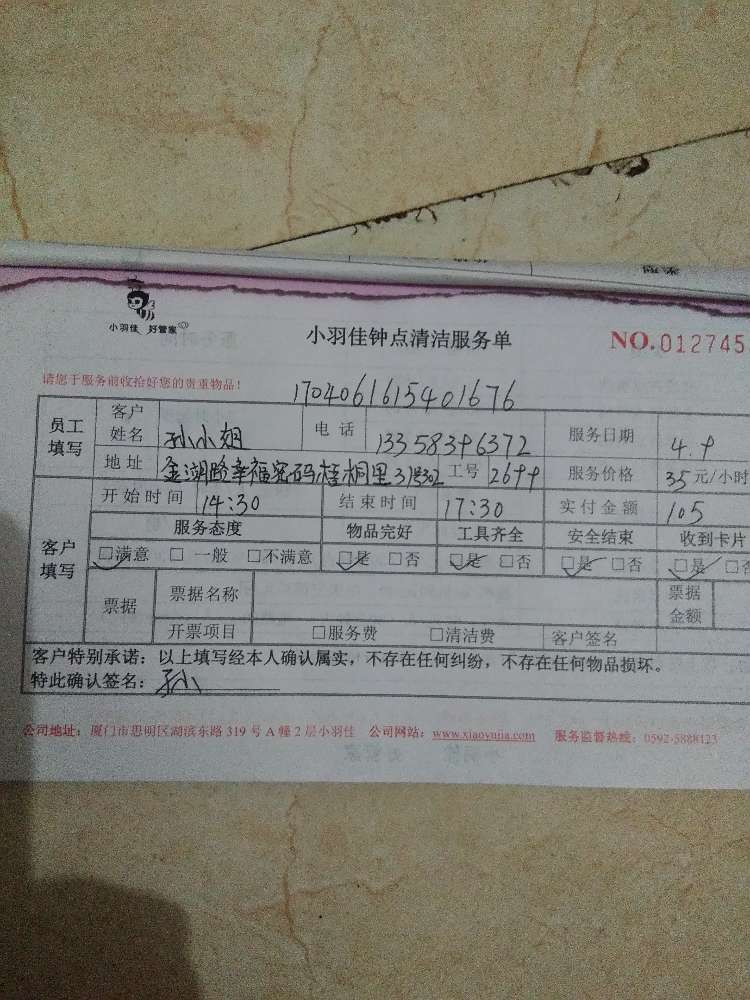 小羽佳 好管家
小羽佳钟点清洁服务单
NO.012745
请您于服务前收拾好您的贵重物品!
1704061615401676
员工填写 客户姓名 孙小姐 电话 13358396372 服务日期 4.9
地址 金湖路幸福密码梧桐里31号302 工号 2699 服务价格 35元/小时
客户填写 开始时间 14:30 结束时间 17:30 实付金额 105
服务态度 物品完好 工具齐全 安全结束 收到卡片
☑满意 □一般 □不满意 ☑是 □否 ☑是 □否 ☑是 □否 ☑是 □否
票据 票据名称 票据金额
开票项目 □服务费 □清洁费 客户签名
客户特别承诺:以上填写经本人确认属实,不存在任何纠纷,不存在任何物品损坏。
特此确认签名:孙
公司地址:厦门市思明区湖滨东路319号A幢2层小羽佳 公司网站:www.xiaoyujia.com 服务监督热线:0592-5888123